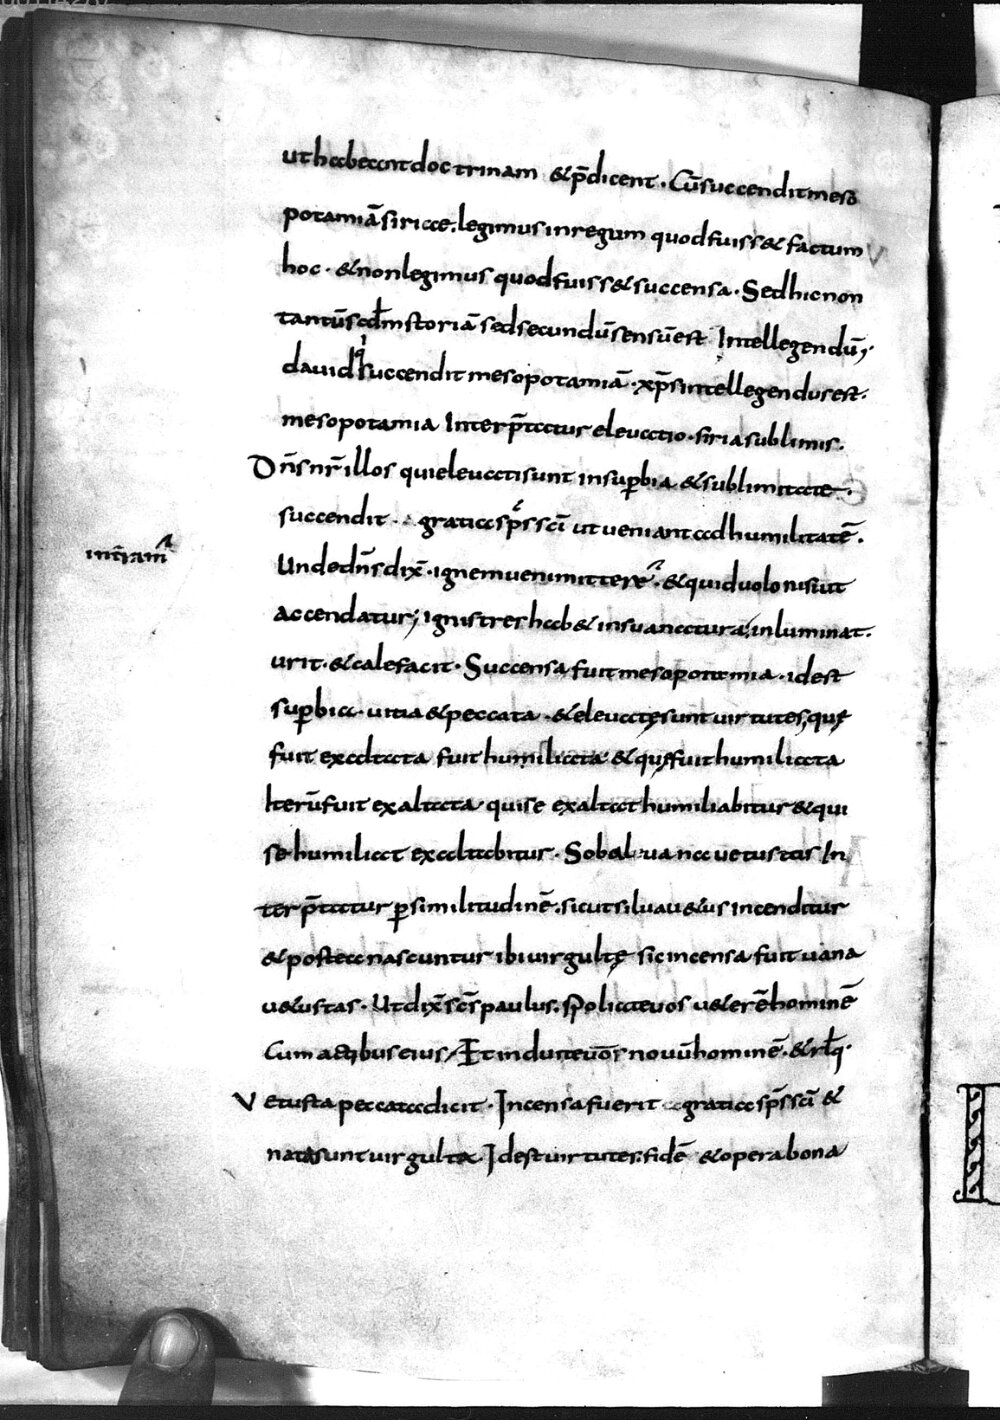 ut habeant doctrinam & p̄dicent. Cū succendit meso
potamiā siriae. legimus in regum quod fuiss& factum
hoc. & non legimus quod fuiss& succensa. Sed hic non
tantū scdm̄ storiā sed secundū sensū est Intellegendū;
david q̄ succendit mesopotamiā. xp̄s intellegendus est.
mesopotamia Interp̄tatur elevatio. siria sublimis.
Dn̄s nr̄ illos qui elevati sunt in sup̱bia & sublimitate.
succendit gratia sp̄s sc̄i ut veniant ad humilitatē.
Unde dn̄s dix̄. ignem veni mittere. & quid volo nisi ut
in tr̄am
accendatur; ignis tres hab& in se naturas, inluminat.
urit. & calefacit. Succensa fuit mesopotamia. idest
sup̱bia. vitia & peccata. & elevatę sunt virtutes, quę
fuit exaltata fuit humiliata & quę fuit humiliata
Iterū fuit exaltata qui se exaltat humiliabitur & qui
se humiliat exaltabitur. Sobal vana vetustas In
terp̄tatur p̱ similitudinē. sicut silva v&us incenditur
& postea nascuntur ibi virgultę sic incensa fuit vana
v&ustas. Ut dix̄ sc̄s paulus. spoliate vos v&erē hominē
Cum actibus eius / Et induite vos novū hominē. & rlq̄.
Vetusta peccata dicit. Incensa fuerit gratia sp̄s sc̄i &
nata sunt virgulta. Idest virtutes. fidē & opera bona